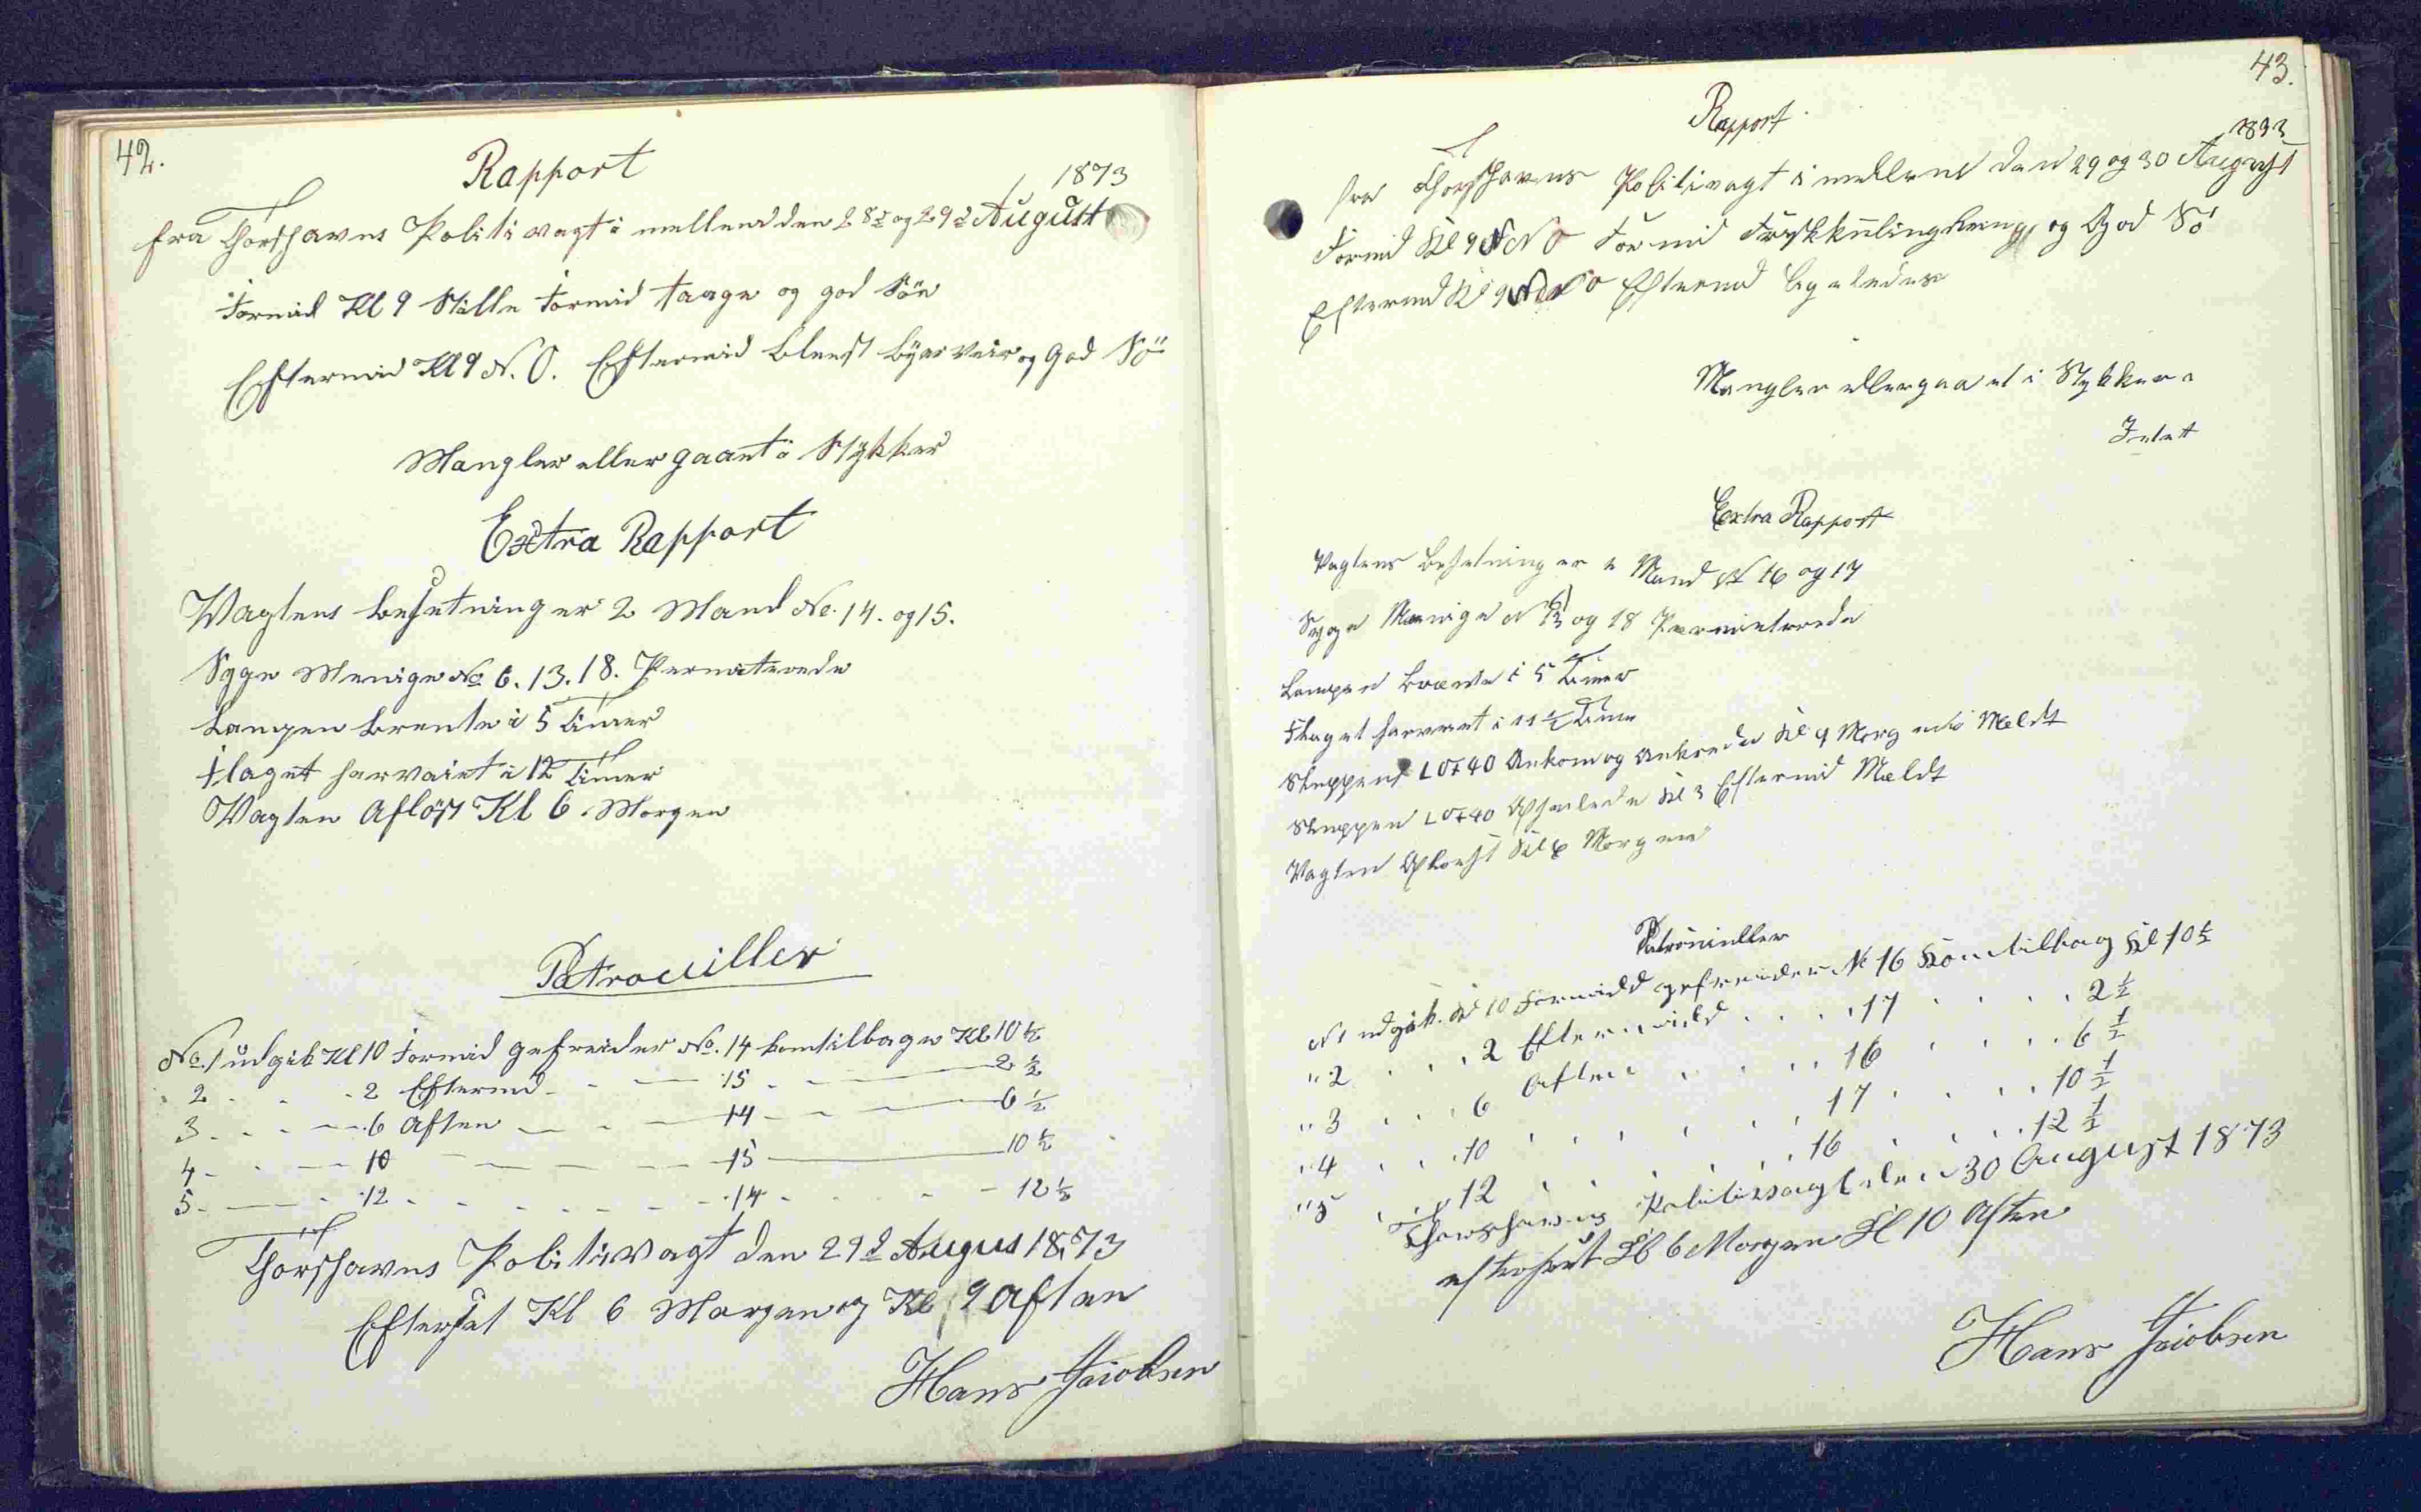 42.
Rapport
1873
fra Thorshavns Politivagt i mellem den 28de og 29de August
Formid Kl 9 Stille Formid Taage og god Söe
Eftermid Kl 9 N. O. Eftermid Blæst Byæveir og God Sö
Mangler eller gaaet i Stykker
Extra Rapport
Vagtens Besetning er 2 Mand No. 14. og 15.
Syge Menige No 6. 13. 18. Permiterede
Lampen brente i 5 Timer
Flaget har vaiet i 12 Timer
Vagten Aflöst Kl 6. Morgen
Patrouiller
No. 1 udgik Kl 10 Formid gefreider No. 14 kom tilbage Kl 10 ½
2 - - - 2 Eftermd - - 15 - - 2 ½
3 - - - 6 Aften - - 14 - - 6 ½
4 - - - 10 - - - 15 - 10 ½
5 - - - 12 - - - 14 - - 12 ½
Thorshavns Politivagt den 29d Augus 1873
Efterset Kl 6 Morgen og Kl 9 Aften
Hans Jacobsen
43.
Rapport
1873
fra Thorshavns Politivagt i mellem den 29 og 30 August
Formid Kl 9 N O Formid Friskkuling og God Sö
Eftermd Kl 9 O Eftermd ligeledes
Mangler eller gaaet i Stykker
Intet
Extra Rapport
Vagtens Besetning er 2 Mand N 16 og 17
Syge Menige N 13 og 18 Permiterede
Lampen brente i 5 Timer
Flaget har vaiet i 11 ½ Time
Sluppen LVF40 Ankom og Ankrede Kl 9 Morg Meldt
Sluppen LVF40 Afseilede Kl 3 Eftermid Meldt
Vagten Afloest Kl 6 Morgen
Patrouiller
N 1 udgik Kl 10 Formidd gefreider N 16 Kom tilbag Kl 10 ½
" 2 " " 2 Eftermidd " " 17 " " 2 ½
" 3 " " 6 Aften " " 16 " " 6 ½
" 4 " " 10 " " " 17 " " 10 ½
" 5 " " 12 " " " 16 " " 12 ½
Thorshavns Politivagt den 30 August 1873
efterseet Kl 6 Morgen Kl 10 Aften
Hans Jacobsen